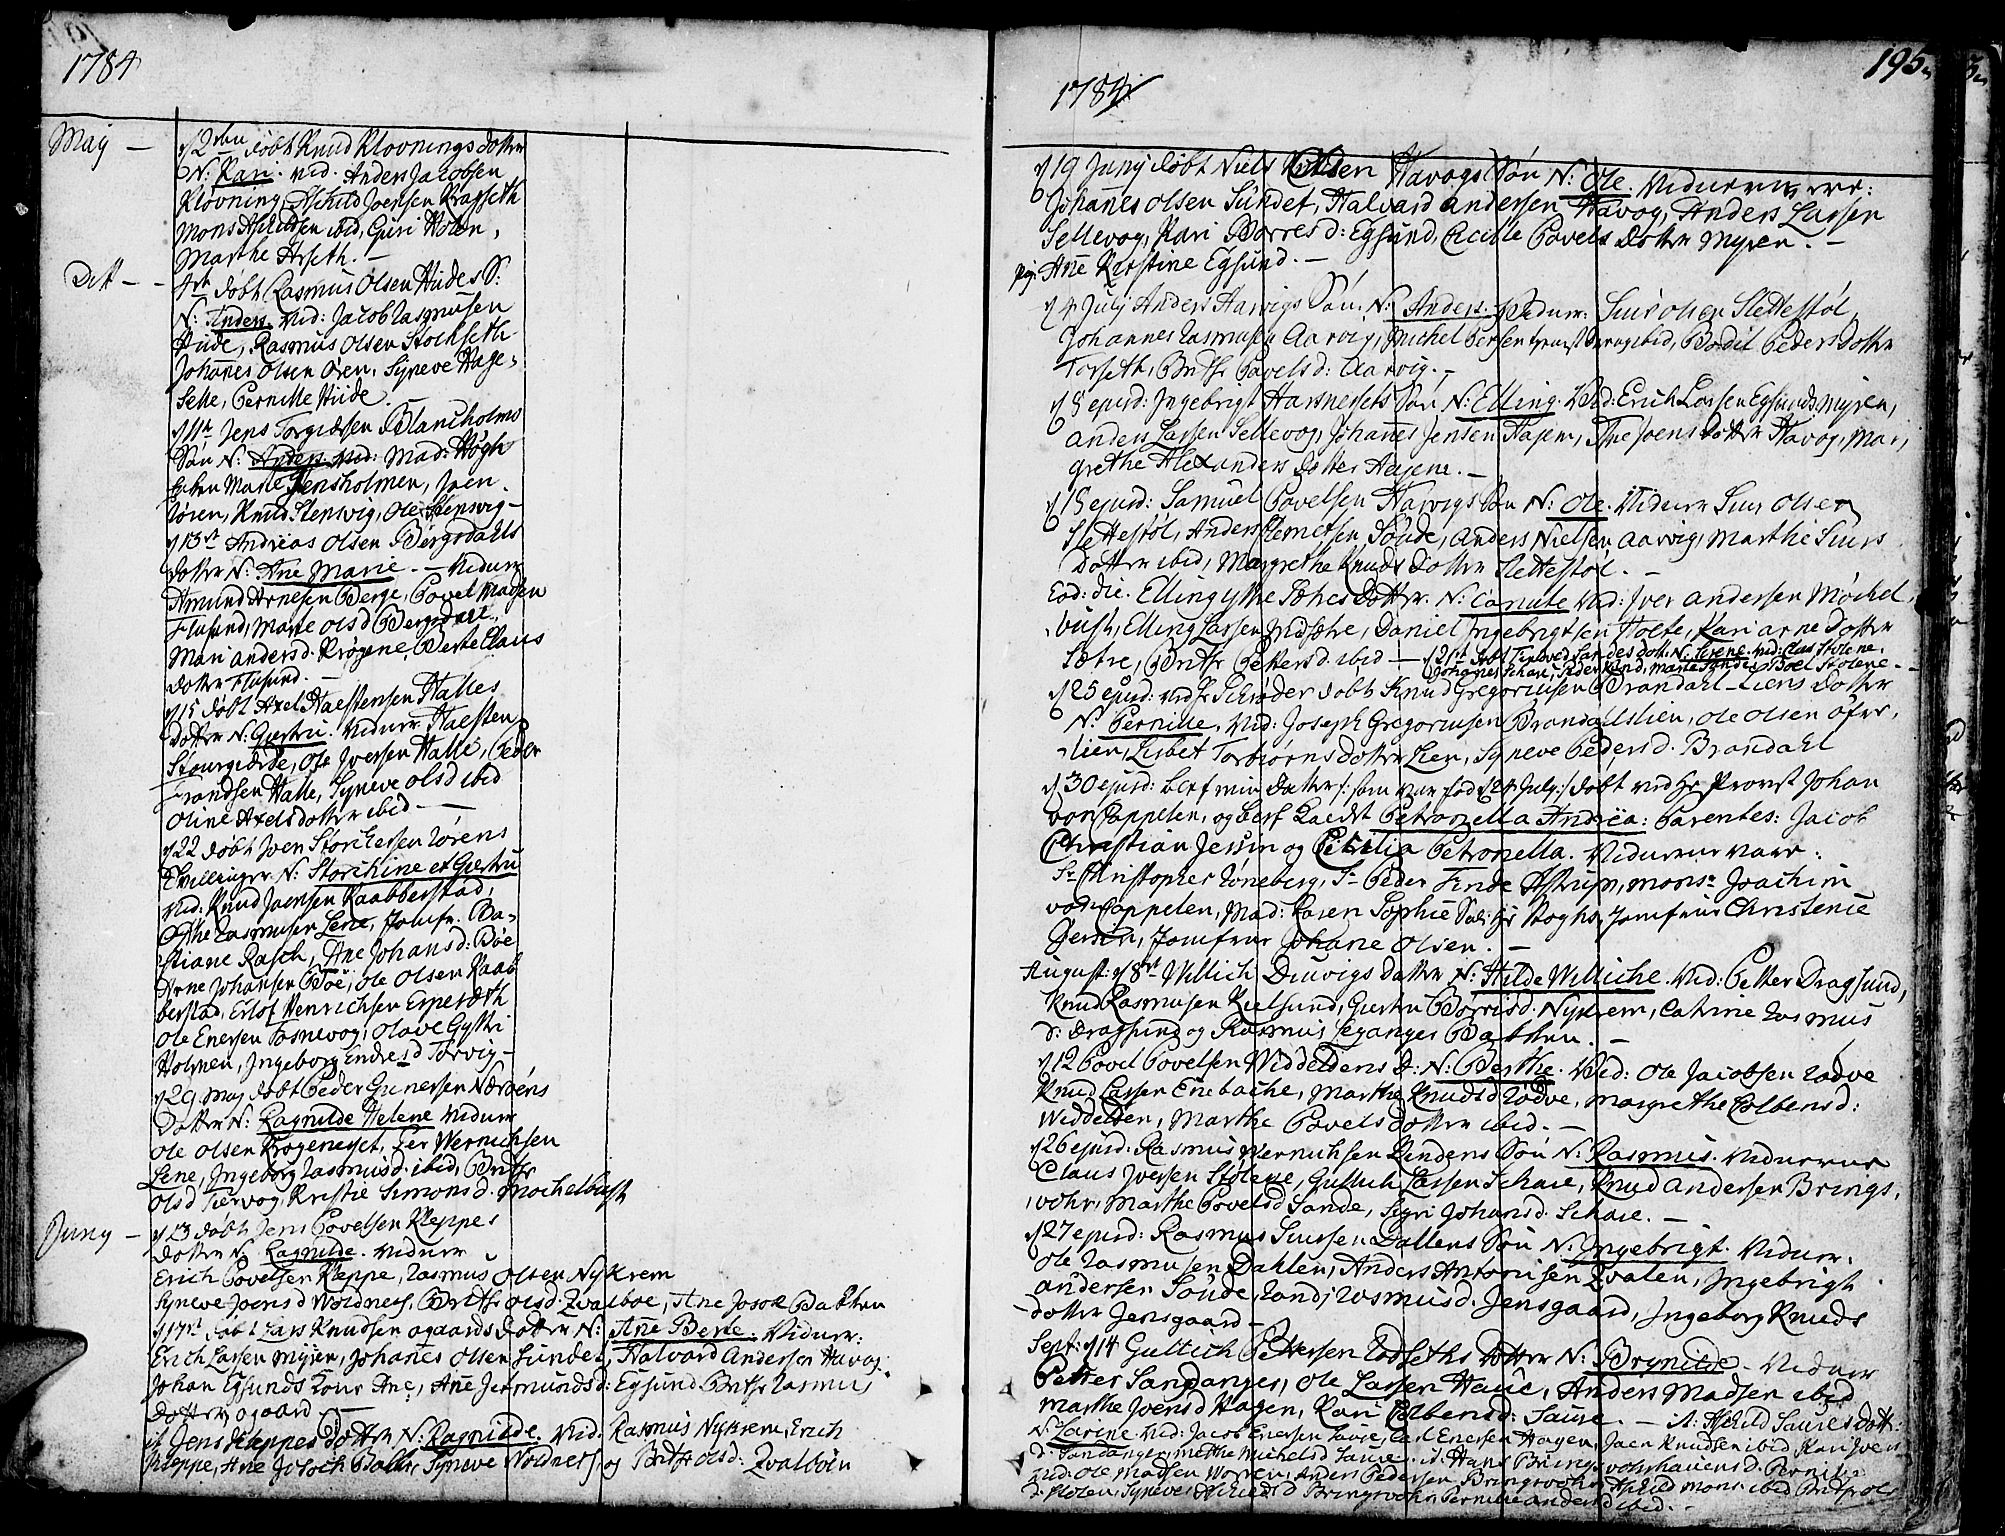 1784
Maij —
d 2den døbt Knud Klovnings dotter
N: Kari. vid. Anders Jacobsen
Klovning, Askild Joensen Krasseth
Mons Askildsen ibid, Guri Holen,
Marthe Arseth. —
Ditt — —
4de døbt Rasmus Olsen Hides S:
N: Anders. vid: Jacob Rasmusen
Hide, Rasmus Olsen Stockseth
Johañes Olsen Oren, Syneve Hage-
Selle, Pernille Hide.
d 11te Jens Torgiersen Blancholms
Søn N: Anders. vid: Mad: Høgh
Marie Jensholmen, Joen
Røren, Knud Stensvig, Ole Stensvig —
d 13de Andreas Olsen Bergsdahls
dotter N: Ane Marie. — Vidner
Amund Arnesen Berge, Povel Madsen
Flusund, Marie Olsd Bergsdall,
Mari Andersd. Krøgene, Berte Claus
dotter Flusund. —
d 15 døbt Axel Haestensen Halles
dotter N: Giertru. Vidner Haesten
Stourgierde, Ole Joersen Halle, Peder
Frandsen Halle, Syneve Olsd ibid
Oline Axelsdotter ibid —
d 22 døbt Joen Storckersen Rørens
Tvillinger N: Storchine et Giertru
vid. Knud Joensen Raabberstad,
Rasmusen Lene, Jomfr. Ba-
stiane Rasch, Ane Johansd: Bøe
Arne Johansen Bøe, Ole Olsen Raab
berstad, Erlof Henrichsen Espeseth
Ole Enersen Tosnevog, Olave Gystri
Holmen, Ingeborg Endresd Torvig —
d 29 Maj døbt Peder Gunersen Nærøens
Dotter N: Ragnilde Helene Vidner
Ole Olsen Krogenesset, Per Wernichsen
Lene, Ingeborg Rasmusd. ibid, Brithe
Olsd Tiervog, Kristie Simonsd. Mochelbust
Juny —
d 13 døbt Jens Povelsen Kleppes
dotter N: Ragnilde. Vidner
Erich Povelsen Kleppe, Rasmus Olsen Nykrem
Syneve Joensd Woldnes, Brithe Olsd. Zvalboe, Ane Josok Bakken
d 17de døbt Lars Knudsen Ogaards Dotter N: Añe Berte. Vidner:
Erich Larsen Myren, Johañes Olsen Sundet, Halvard Andersen Havog
Johan Egsunds Kone Ane, Añe Jermundsd: Egsund Brithe Rasmus
dotter Ogaard —
it Jens Kleppes Dotter N: Ragnilde. Vid. Rasmus Nykrem, Erich
Kleppe, Ane Josoch Bakke, Syneve Voldnes og Brithe Olsd: Zvalboen
195
1784
d 19 Junij døbt Niels Havogs Søn N: Ole. Vidnerne vare:
Johañes Olsen Sundet, Halvard Andersen Havog, Anders Larsen
Sellevog, Kari Børresd: Egsund, Cicille Povels dotter Myren. —
Pig. Añe Kirstine Egsund. —
d 4 Julij Anders Harvigs Søn. N: Anders. Vidner: Siur Olsen Slettestøl,
Johannes Rasmusen Aarvig, Michel Persen ibid, Bodil Peders dotter
Torseth, Brithe Povelsd: Aarvig. —
d 8 ejusd: Ingebrigt Harsnesets Søn N: Elling. Vid: Erich Larsen Egsunds Myren,
Anders Larsen Sellevog, Johañes Jensen Hajem, Ane Joens dotter Havog, Mar-
grethe Alexanders dotter Hajem. —
d 15 ejusd: Samuel Povelsen Harvigs Søn N: Ole. Vidner Siur Olsen
Slettestøl, Anders Clemetsen Sønde, Anders Nielsen Aarvig, Marthe Siurs
Dotter ibid, Margrethe Knuds Dotter Slettestøl. —
Eod: die. Elling ytre Sætres Dotter. N: Canute Vid: Iver Andersen Møckel-
bust, Elling Larsen Midsætre, Daniel Ingebrigtsen Holte, Kari Arne dotter
Sætre, Brithe Pettersd. ibid — d 21de døbt Sandes dott: N: Serene. vid: Clas Stolene.
Johañes Schare, Marie Sande, Boel Stolene. —
d 25 ejusd: ved Hr Schrøder døbt Knud Gregoriusen Brandahl-Liens dotter
N: Pernille. Vid: Joseph Gregoriusen Brandalslien, Ole Olsen Øfre-
lien, Lisbet Torbiørns dotter Lien, Syneve Pedersd. Brandahl
d 30 ejusd: blef min Datter /: som var fød d 24 July :/ døbt ved Hr Provst Johan
von Cappelen, og blef kaldt Petronella Andrea: Parentes: Jacob
Christian Jersin og Cicilia Petronella. Vidnerne vare:
Sr Christopher Røneberg, Sr Peder Finde Astrup, Monsr Joachim
von Cappelen, Mad: Karen Sophie Sal: Hr Høghs, Jomfrue Christense
Jersin, Jomfrue Johane Olsen. —
August: d 8de Willich Driwigs datter N: Hilde Williche. Vid: Petter Dragsund,
Knud Rasmusen Kielsund, Giertru Børresd. Nykrem, Catrine Rasmus
d: Dragsund og Rasmus Leganger Bakken. —
d 12 Povel Povelsen Viddeldens D. N: Berthe. Vid: Ole Jacobsen Rødve
Knud Larsen Enebache, Marthe Knudsd Rødve, Margrethe Colbensd:
Weddelden, Marthe Povels dotter ibid. —
d 26 ejusd. Rasmus Wernichsen Rindens Søn N: Rasmus. Vidnerne
Claus Joersen Stolene, Gullich Larsen Schare, Knud Andersen Brings-
vohr, Marthe Povelsd Sande, Sigri Johansd. Schare. —
d 27 ejusd: Rasmus Siursen Dallens Søn N: Ingebrigt. Vidner.
Ole Rasmusen Dahlen, Anders Antonisen Zvalen, Ingebrigt
Andersen Sønde, Randi Rasmusd. Jensgaard, Ingeborg Knuds
dotter Jensgaard —
Sept: d 14 Gullich Pettersen Rødseths Dotter N: Brynilde. Vidner
Petter Sandanger, Ole Larsen Haue, Anders Madsen ibid
Marthe Joensd Hagen, Kari Colbensd: Saure. — it: Askild Saures Dott:
N: Larine vid: Jacob Enersen Saure, Carl Enersen Hagen, Joen Knudsen ibid, Kari Joens
d. Sandanger, Marthe Michelsd Saure. it. Hans Brings-vohrhauens d. Pernille
vid: Ole Madsen Voren, Anders Pedersen Bringsvohr, Askild Mons: ibid Brithe Ols
d. Stolen, Syneve Askildsd Bringsvohr, Pernille Andersd ibid. —